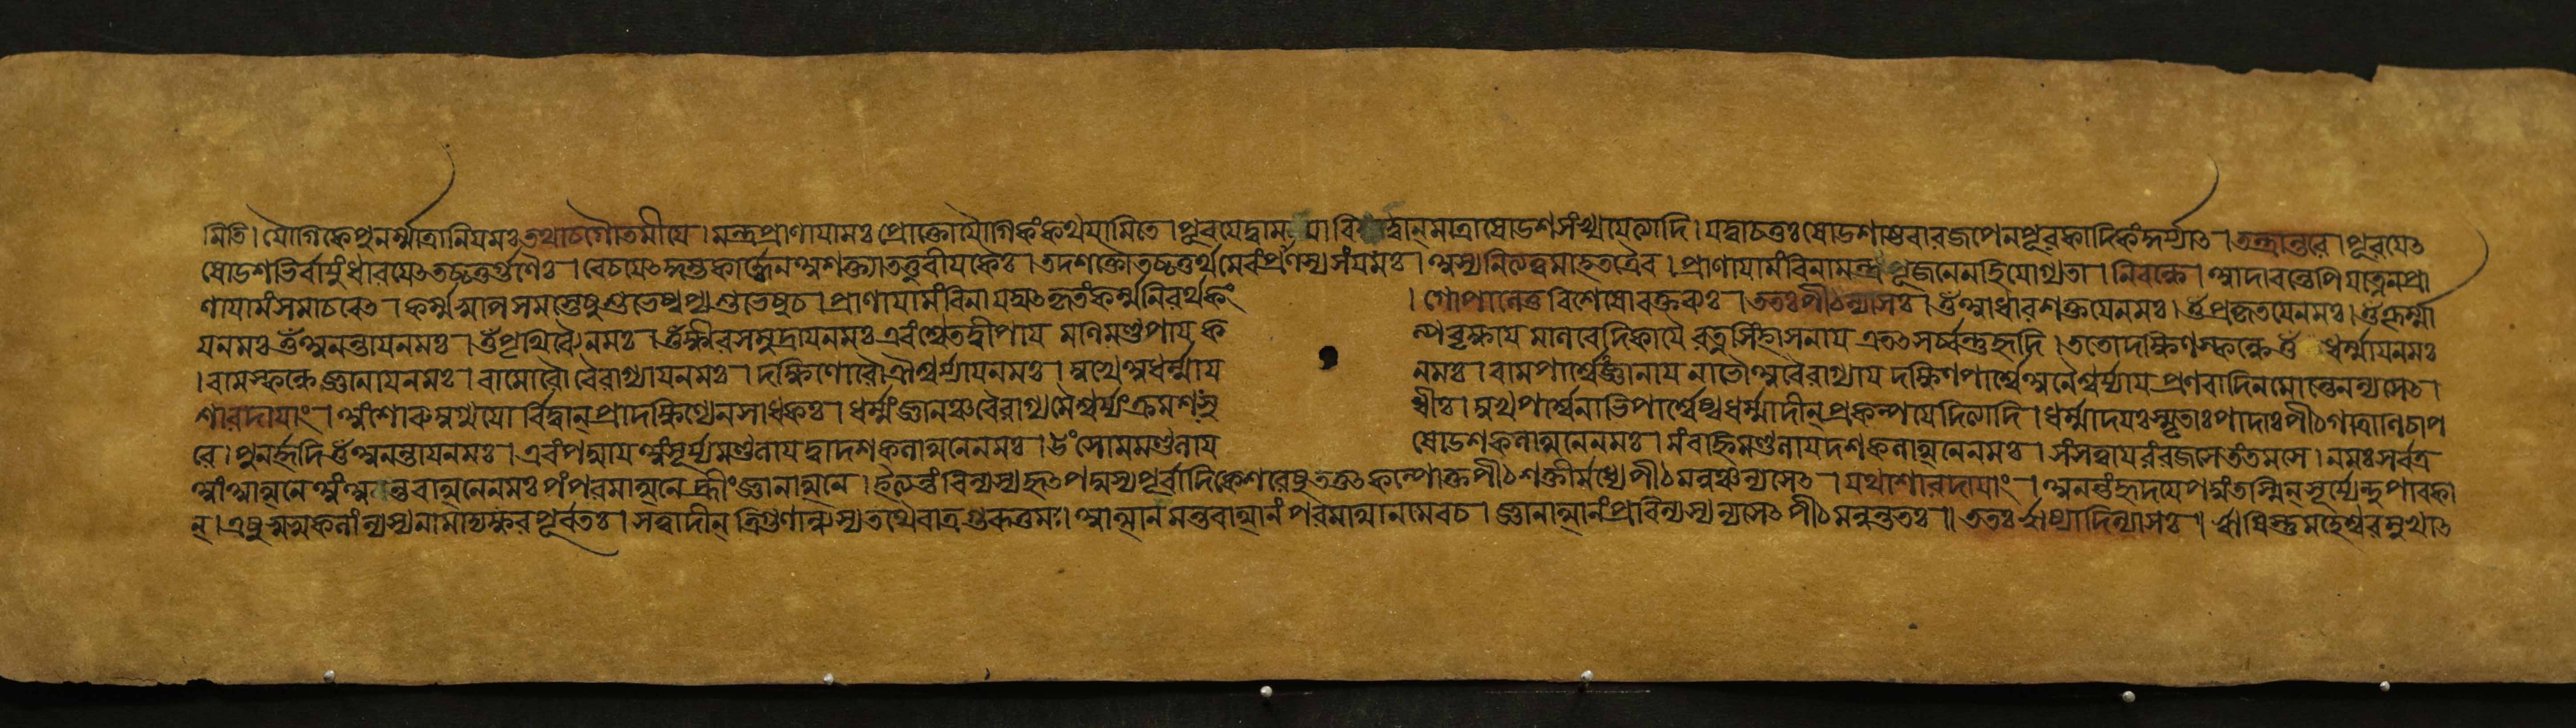 মিতি। যৌগিকে পুনর্ম্মাত্রানিযমঃ তথাচ গৌতমীযে। মন্ত্রপ্রাণাযামঃ প্রোক্তো যৌগিকং কথযামি তে। পূরযেদ্বাম যা বিদ্বান্ মাত্রাষোডশসংখ্যযেত্যাদি। যদ্বা চতুঃষোডশাষ্টবারজপেন পূরকাদিকং কুর্য্যাৎ। তন্ত্রান্তরে। পূরযেৎ
ষোডশভির্বাযুং ধারযেৎ তচ্চতুর্গুণৈঃ। রেচযেৎ কুম্ভকার্দ্ধেন অশক্ত্যা তত্তুরীযকৈঃ। তদশক্তৌ তচ্চতুর্থমেবং প্রাণস্য সংযমঃ। অস্য নিত্যত্বমাহ তত্রৈব। প্রাণাযামং বিনা মন্ত্রপূজনে নহি যোগ্যতা। নিবন্ধে। আদাবন্তেপি যত্নেন প্রা
ণাযামং সমাচরেৎ। কর্ম্মস্বপি সমস্তেষু শুভেষ্বপ্যশুভেষু চ। প্রাণাযামং বিনা যদ্যৎ কৃতং কর্ম্ম নিরর্থকং । গোপালে তু বিশেষো বক্তব্যঃ। ততঃ পীঠন্যাসঃ। ওঁ আধারশক্তযে নমঃ। ওঁ প্রকৃতযে নমঃ। ওঁ কূর্ম্মা
য নমঃ ওঁ অনন্তায নমঃ। ওঁ পৃথিব্যৈ নমঃ। ওঁ ক্ষীরসমুদ্রায নমঃ এবং শ্বেতদ্বীপায মণিমণ্ডপায ক ল্পবৃক্ষায মণিবেদিকাযৈ রত্নসিংহাসনায এতৎ সর্ব্বন্তু হৃদি। ততো দক্ষিণস্কন্ধে ওঁ ধর্ম্মায নমঃ
। বামস্কন্ধে জ্ঞানায নমঃ। বামোরৌ বৈরাগ্যায নমঃ। দক্ষিণোরৌ ঐশ্বর্য্যায নমঃ। মুখে অধর্ম্মায নমঃ। বামপার্শ্বে অজ্ঞানায নাভৌ অবৈরাগ্যায দক্ষিণপার্শ্বে অনৈশ্বর্য্যায প্রণবাদিনমোন্তেন ন্যসেৎ।
শারদাযাং। অংশোরুযুগ্মযো র্বিদ্বান্ প্রাদক্ষিণ্যেন সাধকঃ। ধর্ম্মং জ্ঞানঞ্চ বৈরাগ্যমৈশ্বর্য্যং ক্রমশঃ সু ধীঃ। মুখপার্শ্বে নাভিপার্শ্বেষ্বধর্ম্মাদীন্ প্রকল্পযেদিত্যাদি। ধর্ম্মাদযঃ স্মৃতাঃ পাদাঃ পীঠগাত্রাণি চাপ
রে। পুনর্হৃদি ওঁ অনন্তায নমঃ। এবং পদ্মায অং সূর্য্যমণ্ডলায দ্বাদশকলাত্মনে নমঃ। উং সোমমণ্ডলায ষোডশকলাত্মনে নমঃ। মং বহ্নিমণ্ডলায দশকলাত্মনে নমঃ। সং সত্বায রং রজসে তং তমসে। নমঃ সর্বত্র
আং আত্মনে অং অন্তরাত্মনে নমঃ পং পরমাত্মনে হ্রীং জ্ঞানাত্মনে। ইত্যন্তং বিন্যস্য হৃৎপদ্মস্য পূর্বাদিকেশরেষু তত্তৎকল্পোক্তপীঠশক্তীর্মধ্যে পীঠমন্ত্রঞ্চ ন্যসেৎ। যথা শারদাযাং। অনন্তং হৃদযে পদ্মং তস্মিন্ সূর্য্যেন্দুপাবকা
ন্। এষু স্বস্বকলাং ন্যস্য নামাদ্যক্ষরপূর্বতঃ। সত্বাদীন্ ত্রিগুণান্ ন্যস্য তথৈবাত্র গুরূত্তমঃ। আত্মানমন্তরাত্মানং পরমাত্মানমেব চ। জ্ঞানাত্মানং প্রবিন্যস্য ন্যসেৎ পীঠমনুন্ততঃ॥ ততঃ ঋষ্যাদিন্যাসঃ॥ ঋষিন্তু মহেশ্বরমুখাৎ